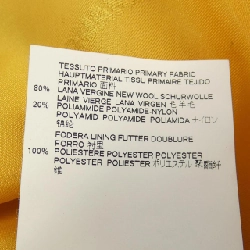 TESSUTO PRIMARIO PRIMARY FABRIC
HAUPTMATERIAL TISSU PRIMAIRE TEJIDO
PRIMARIO 面料
80% LANA VERGINE NEW WOOL SCHURWOLLE
LAINE VIERGE LANA VIRGEN 羊毛
20% POLIAMMIDE POLYAMIDE-NYLON
POLYAMID POLYAMIDE POLIAMIDA ナイロン
锦纶
FODERA LINING FUTTER DOUBLURE
FORRO 里
100% POLIESTERE POLYESTER POLYESTER
POLYESTER POLIESTER ポリエステル 聚酯纤
维